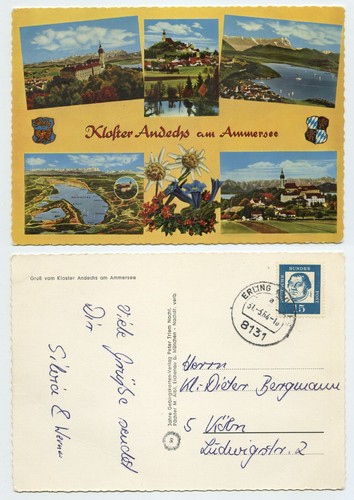 Kloster Andechs am Ammersee
Gruß vom Kloster Andechs am Ammersee
Viele Grüße sendet
Dir
Silvia & Werner
DEUTSCHE
BUNDESPOST
15
ERLING
a
8131
Herrn
Kl. Dieter Bergmann
5 Köln
Ludwigstr. 2